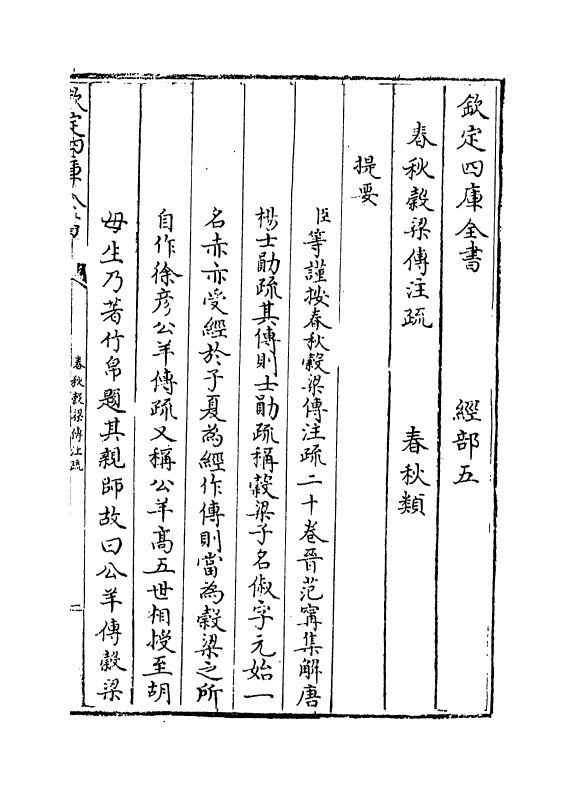 欽定四庫全書　　　經部五
春秋穀梁傳注疏　　春秋類
提要
臣等謹按春秋穀梁傳注疏二十卷晉范甯集解唐
楊士勛疏其傳則士勛疏稱穀梁子名俶字元始一
名赤亦受經於子夏為經作傳則當為穀梁之所
自作徐彦公羊傳疏又稱公羊髙五世相授至胡
母生乃著竹帛題其親師故曰公羊傳穀梁
欽定四庫全書
春秋穀梁傳注疏